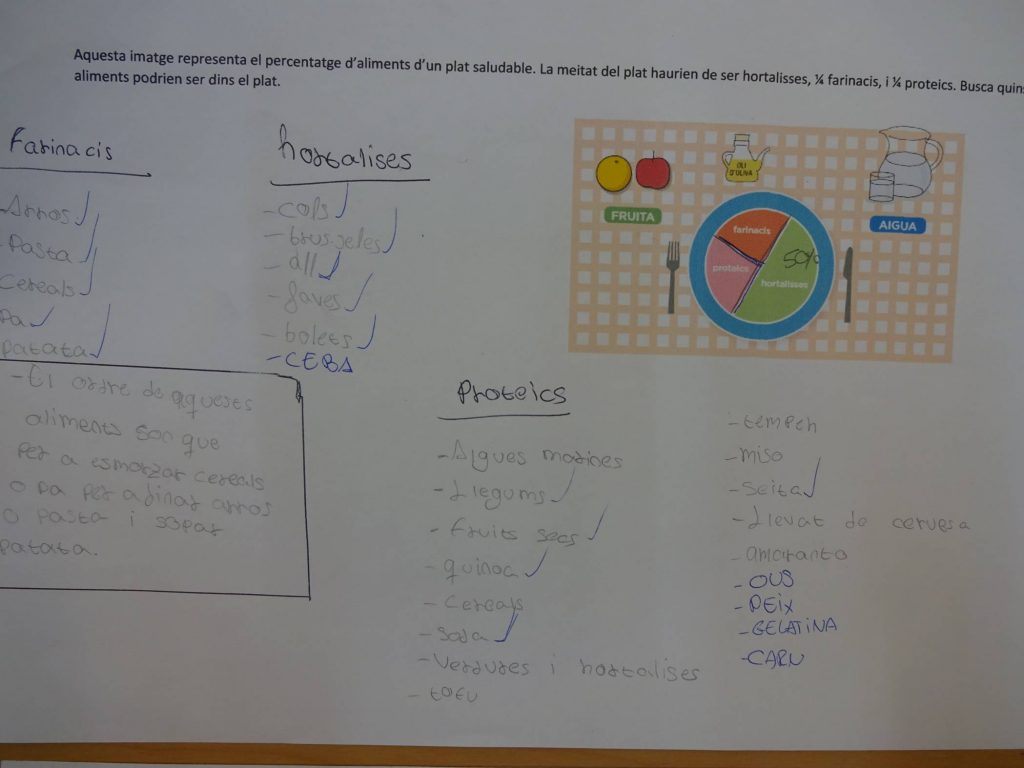 Aquesta imatge representa el percentatge d'aliments d'un plat saludable. La meitat del plat haurien de ser hortalisses, ¼ farinacis, i ¼ proteics. Busca quins
aliments podrien ser dins el plat.
Farinacis
Arros
Pasta
Cereals
Pa
patata
hortalises
- cols
- brusseles
- all
- faves
- bolets
- CEBA
FRUITA
OLI
D'OLIVA
AIGUA
farinacis
proteics
50%
hortalisses
- El ordre de aqueses
aliments son que
per a esmorzar cereals
o pa per a dinar arros
o pasta i sopar
patata.
Proteics
- Algues marines
- Llegums
- Fruits secs
- quinoa
- Cereals
- Soja
- Verdures i hortalises
- tofu
- tempeh
- miso
- Seita
- Llevat de cervesa
- amaranto
- OUS
- PEIX
- GELATINA
- CARN